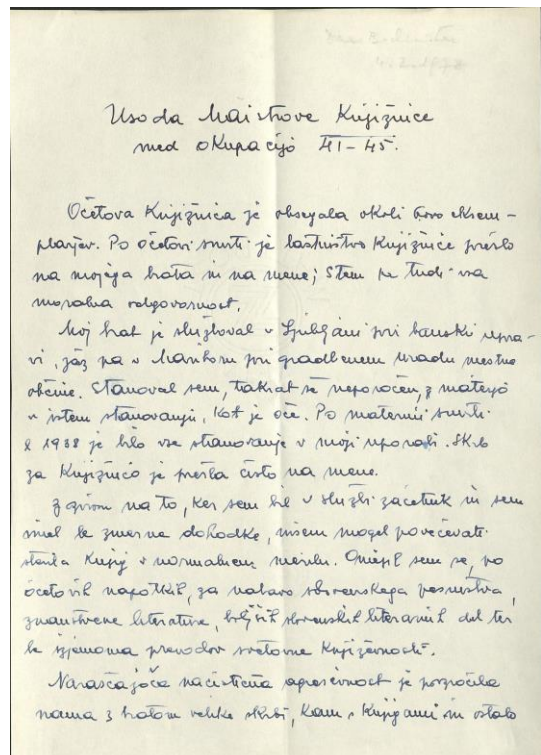 Usoda Maistrove Knjižnice
med okupacijo 41-45.
Očetova Knjižnica je obsegala okoli eksem-
plarjev. Po očetovi smrti je lastništvo Knjižnice prešlo
na mojega brata in na mene; s tem pa tudi vsa
moralna odgovornost.
Moj brat je služboval v Ljubljani pri banski upra-
vi, jaz pa v Mariboru pri gradbenem uradu mestne
občine. Stanoval sem, takrat še neporočen, z materjo
v istem stanovanju, kot je oče. Po materini smrti
l 1938 je bilo vse stanovanje v moji uporabi. Skrb
za Knjižnico je prešla čisto na mene.
Z ozirom na to, ker sem bil v službi začetnik in sem
imel le zmerne dohodke, nisem mogel povečevati
števila Knjig v normalnem merilu. Omejil sem se, po
očetovih napotkih, za nabavo slovenskega pesništva,
znanstvene literature, boljših slovenskih literarnih del ter
le izjemoma prevodov svetovne Književnosti.
Naraščajoča nacistična agresivnost je povzročila
nama z bratom velike skrbi, Kam s Knjigami in ostalo